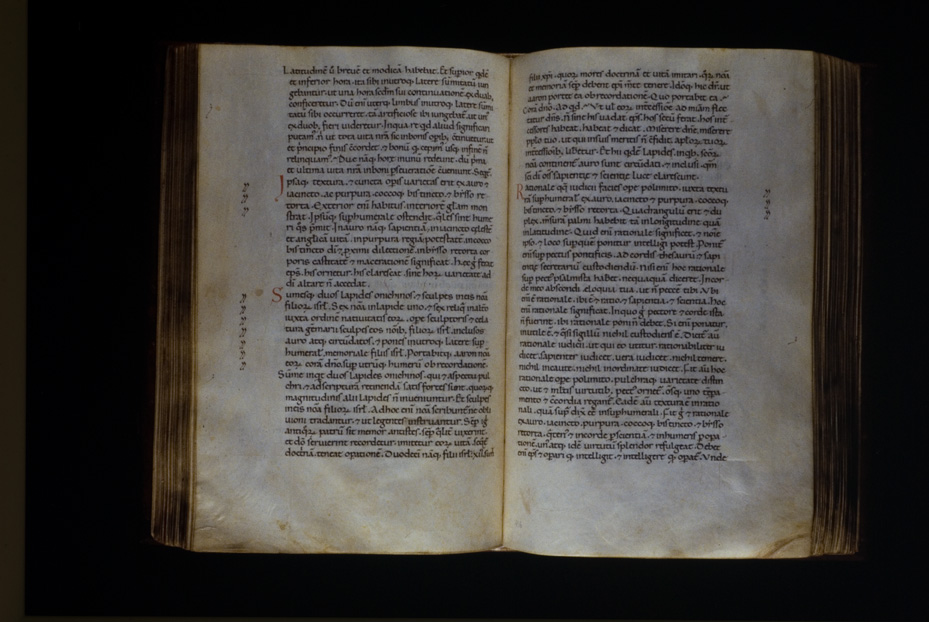 Latitudinē ū breuē et modicā habetur. Et supior qdē
et inferior hora. ita sibi inutroq; latere summatū iun
gebantur. ut una hora sedm sui continuatione ex duab;
conficeretur. Dū eni uterq; limbus inutroq; latere sum
tatū sibi occurreret. ita artificiose ibi iungebat. ut un
ex duob; fieri uideretur. In qua re qd aliud significari
putam. n ut tota uita nra sic inbonis opib; continuetur. ut
et principio finis ccordet. & bonū qd cepim usq; infine n
relinquam. Due naq; hore munū redeunt. dū pma
et ultima uita nra inboni pseueratioe eueniunt. Seqt.
Ipsaq; textura. & cuncta opis uarietas erit ex auro &
iacincto. ac purpura. coccoq; bis tincto. & bisso re
torta. Exterior eni habitus. interiorē glam mon
strat. Ipsūq; suphumerale ostendit. qles sint hume
ri qs pmit. In auro naq; sapientia. iniacincto celeste
et anglica uita. inpurpura regia potestate. incocco
bis tincto di & pximi dilectione. inbisso retorta cor
poris castitate & maceratione significat. Hec g ferat
eps. his ornetur. his clarescat. sine hoꝝ uarietate ad
di altare n accedat.
Sumesq; duos lapides onichinos. & sculpes ineis noā
filioꝝ isrl. Sex noā inlapide uno. & sex reliq inalto
iuxta ordinē natiuitatis eoꝝ. ope sculptoris & cela
tura gemarii sculpes eos noīb; filioꝝ isrl. inclusos
auro atq; circūdatos. & pones inutroq; latere sup
humeral. memoriale filiis isrl. Portabitq; aaron noā
eoꝝ corā dno. sup utrūq; humerū ob recordatione.
Sume inqt duos lapides onichinos. qui & aspectu pul
chri. & ad scripturā retinendā satis fortes sunt. quoꝝq;
magnitudinis alii lapides n inueniuntur. Et sculpes
ineis noā filioꝝ isrl. Ad hoc eni noā scribunt. ne obli
uioni tradantur. & ut legentes instruantur. Sēp ig
antiqꝝ patrū sit memor antistes. sēp qlit uixerint
et dō seruierint recordetur. imitetur eoꝝ uitā. seqt
doctrinā. teneat opationē. Duodeci naq; filii isrl. xii. sunt
filii xpi. quoꝝ mores doctrinā et uitā imitari. qꝝ noā
et memoriā sep debent epi inte tenere. Idoq; hic dr. ut
aaron portet ea ob recordatione. Quo portabit ea.
Corā dno. Ad qd. Ut ul eoꝝ intcessioe ad miam flec
tatur dns. n sine his uadat eps. hos secū ferat. hos int
cessores habeat. habeat & dicat. Miserere dne. miserere
pplo tuo. ut qui insuis meritis n cfidit. aplor tuoꝝ
intcessioib; libetur. Et hi qdē lapides. inqb; scoꝝ
noā continent. auro sunt circūdati. & inclusi. qm
sci di os sapientie & scientie luce clarescunt.
Rationale qq; iudicii facies ope polimito. iuxta textu
rā suphumeral. ex auro. iacincto & purpura. coccoq;
bis tincto. & bisso retorta. Quadrangulū erit & du
plex. mēsurā palmi habebit tā inlongitudine quā
inlatitudine. Quid eni rationale significet. & noīe
ipso. & loco supque ponitur intelligi potest. Ponit
eni suppectus pontificis. Ad cordis thesaurū & sapi
entie secretariū custodiendū. Nisi eni hoc rationale
sup pect psalmista habet. nequaqua diceret. Incor
de meo abscondi eloquia tua. ut n peccē tibi. Ubi
eni ē rationale. ibi ē & ratio & sapientia & scientia. Hoc
eni rationale significat. Inquo g pectore & corde ista
n fuerint. ibi rationale poni n debet. Si eni ponatur.
inutile ē. & qsi sigillū nichil custodiens ē. Dictū au
rationale iudicii. ut qui eo utitur. rationabiliter iu
dicet. sapienter iudicet. uera iudicet. nichil temere.
nichil incaute. nichil inordinate iudicet. Fit au hoc
rationale ope polimito. pulchraq; uarietate distin
cto. ut & mltis uirtutib; pect ornet. osq; uno tepa
mento & ccordia regant. Eadē au textura ē inratio
nali. quā sup dix ēē insuphumerali. Fit g & rationale
ex auro. iacincto. purpura. coccoq; bis tincto. & bisso
retorta. qten & incorde pscientia. & inhumeris p opa
tionē. un atq; idē uirtutū splendor refulgeat. Debet
eni eps & opari q intelligit. & intelligere q opat. Unde